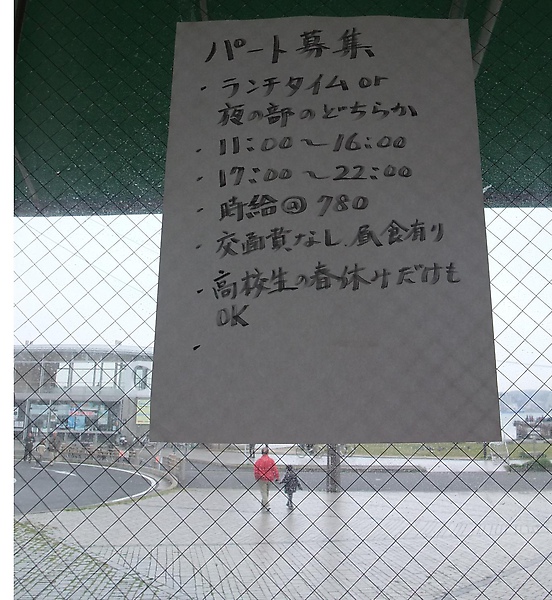 パート募集
・ランチタイム or
夜の部のどちらか
・11:00〜16:00
・17:00〜22:00
・時給@780
・交面費なし、昼食有り
・高校生の春休みだけも
OK
・